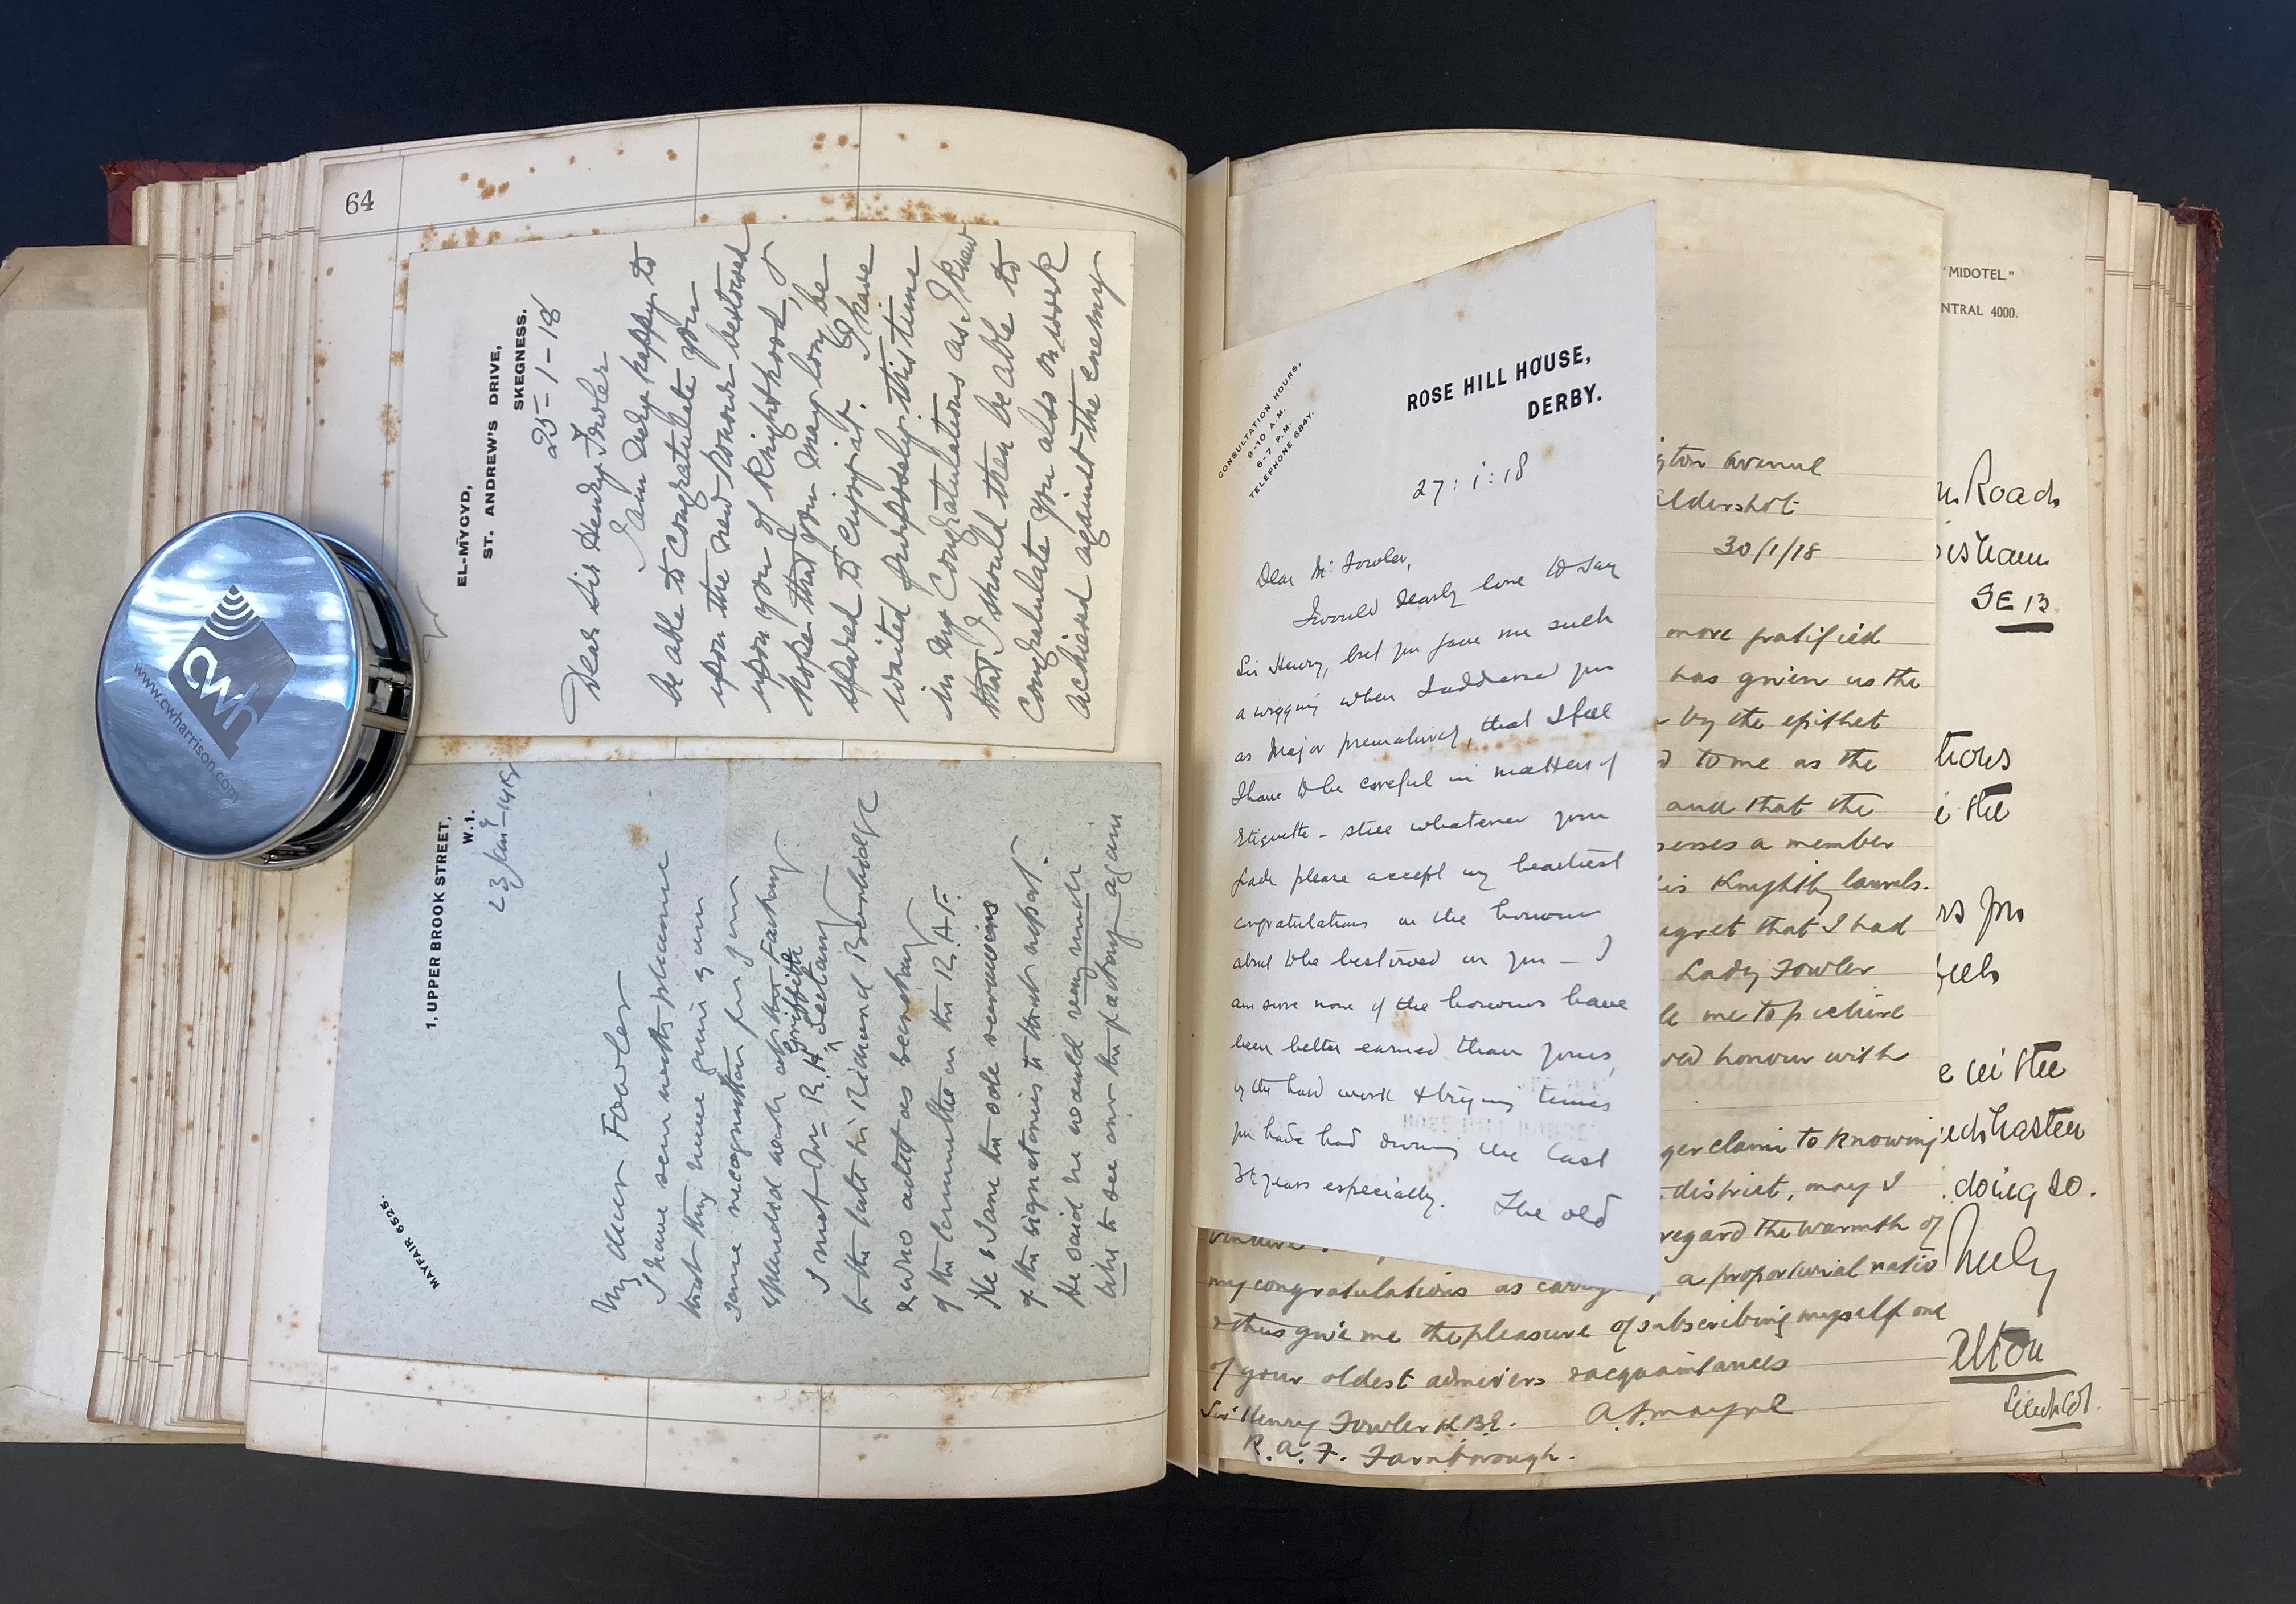 64
EL-MYGYD,
ST. ANDREW'S DRIVE,
SKEGNESS.
25-1-18
Dear Sir Henry Fowler
I am very happy to
be able to congratulate you
upon the new honour bestowed
upon you of Knighthood, &
hope that you may long be
spared to enjoy it. I have
waited purposely this time
in my Congratulations as I knew
that I should then be able to
Congratulate you also on work
achieved against the enemy
MAYFAIR 6525.
1, UPPER BROOK STREET,
W.1.
23 Jany - 1918
My dear Fowler
I have seen with pleasure
that they have given you
some recognition for your
splendid work at the Factory
I met Mr R. H. Griffith Secretary
to the late Sir Richard Burbidge
& who acted as secretary
of the Committee on the R.A.F.
He & I are the sole survivors
of the signatories to that report.
He said he would very much
like to see over the factory again
www.cwharrison.com
cwh
CONSULTATION HOURS,
9-10 A.M.
6-7 P.M.
TELEPHONE 684Y.
ROSE HILL HOUSE,
DERBY.
27:1:18
Dear Mr Fowler,
I would dearly love to say
Sir Henry, but you gave me such
a wigging when I addressed you
as Major prematurely, that I feel
I have to be careful in matters of
Etiquette - still whatever your
grade please accept my heartiest
congratulations on the honour
about to be bestowed on you - I
am sure none of the honours have
been better earned than yours,
by the hard work & trying times
you have had during the last
3½ years especially. The old
gton Avenue
Aldershot
30/1/18
more gratified
has given us the
by the epithet
to me as the
and that the
senses a member
his Knightly laurels.
regret that I had
Lady Fowler
le me to picture
ved honour with
ger claim to knowing
district, may I
regard the warmth of
my congratulations as carry a proportional ratio
& thus give me the pleasure of subscribing myself one
of your oldest admirers & acquaintances
A. S. Mayne
Sir Henry Fowler K.B.E.
R.A.F. Farnborough.
"MIDOTEL."
NTRAL 4000.
Road
isham
SE 13
tions
the
rs you
feels
e in the
ed hasten
doing so.
Truly
elton
Lieut Col.